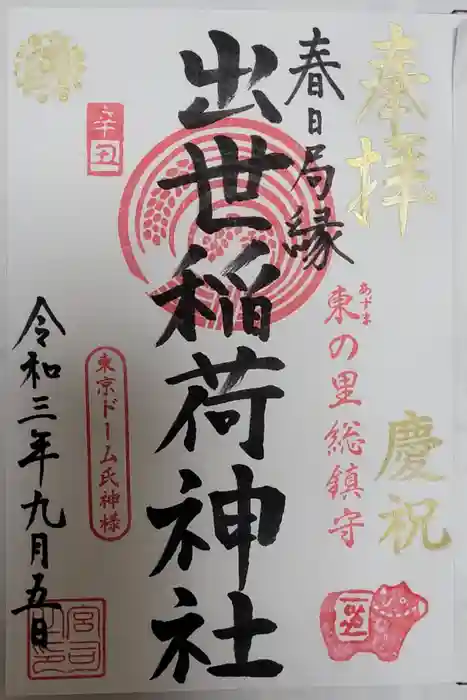 奉拝
慶祝
春日局縁
あずま
東の里総鎮守
出世稲荷神社
辛丑
東京ドーム氏神様
令和三年九月五日